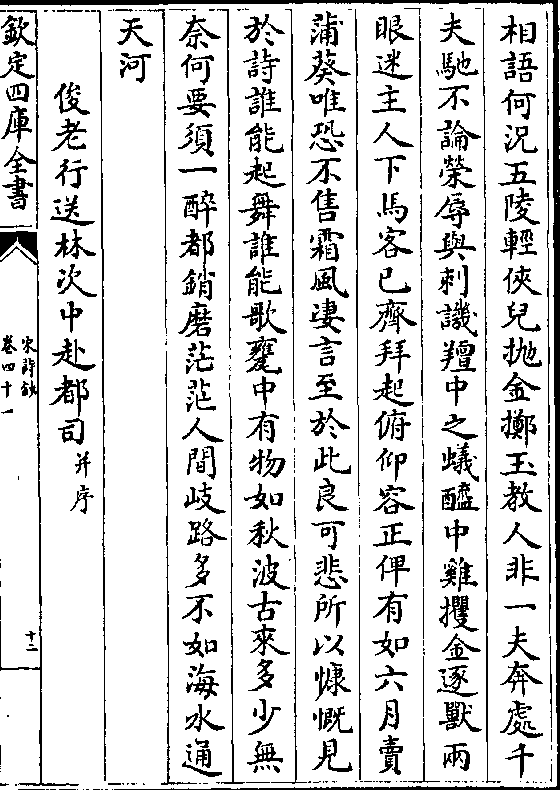 相語何況五陵輕俠兒拋金擲玉教人非一夫奔處千
夫馳不論榮辱與刺譏羶中之蟻醯中雞攫金逐獸兩
眼迷主人下馬客已齊拜起俯仰容正俾有如六月賣
蒲葵唯恐不售霜風淒言至於此良可悲所以慷慨見
於詩誰能起舞誰能歌甕中有物如秋波古來多少無
奈何要須一醉都銷磨茫茫人間岐路多不如海水通
天河
俊老行送林次中赴都司并序
欽定四庫全書
宋詩鈔
卷四十一
十二